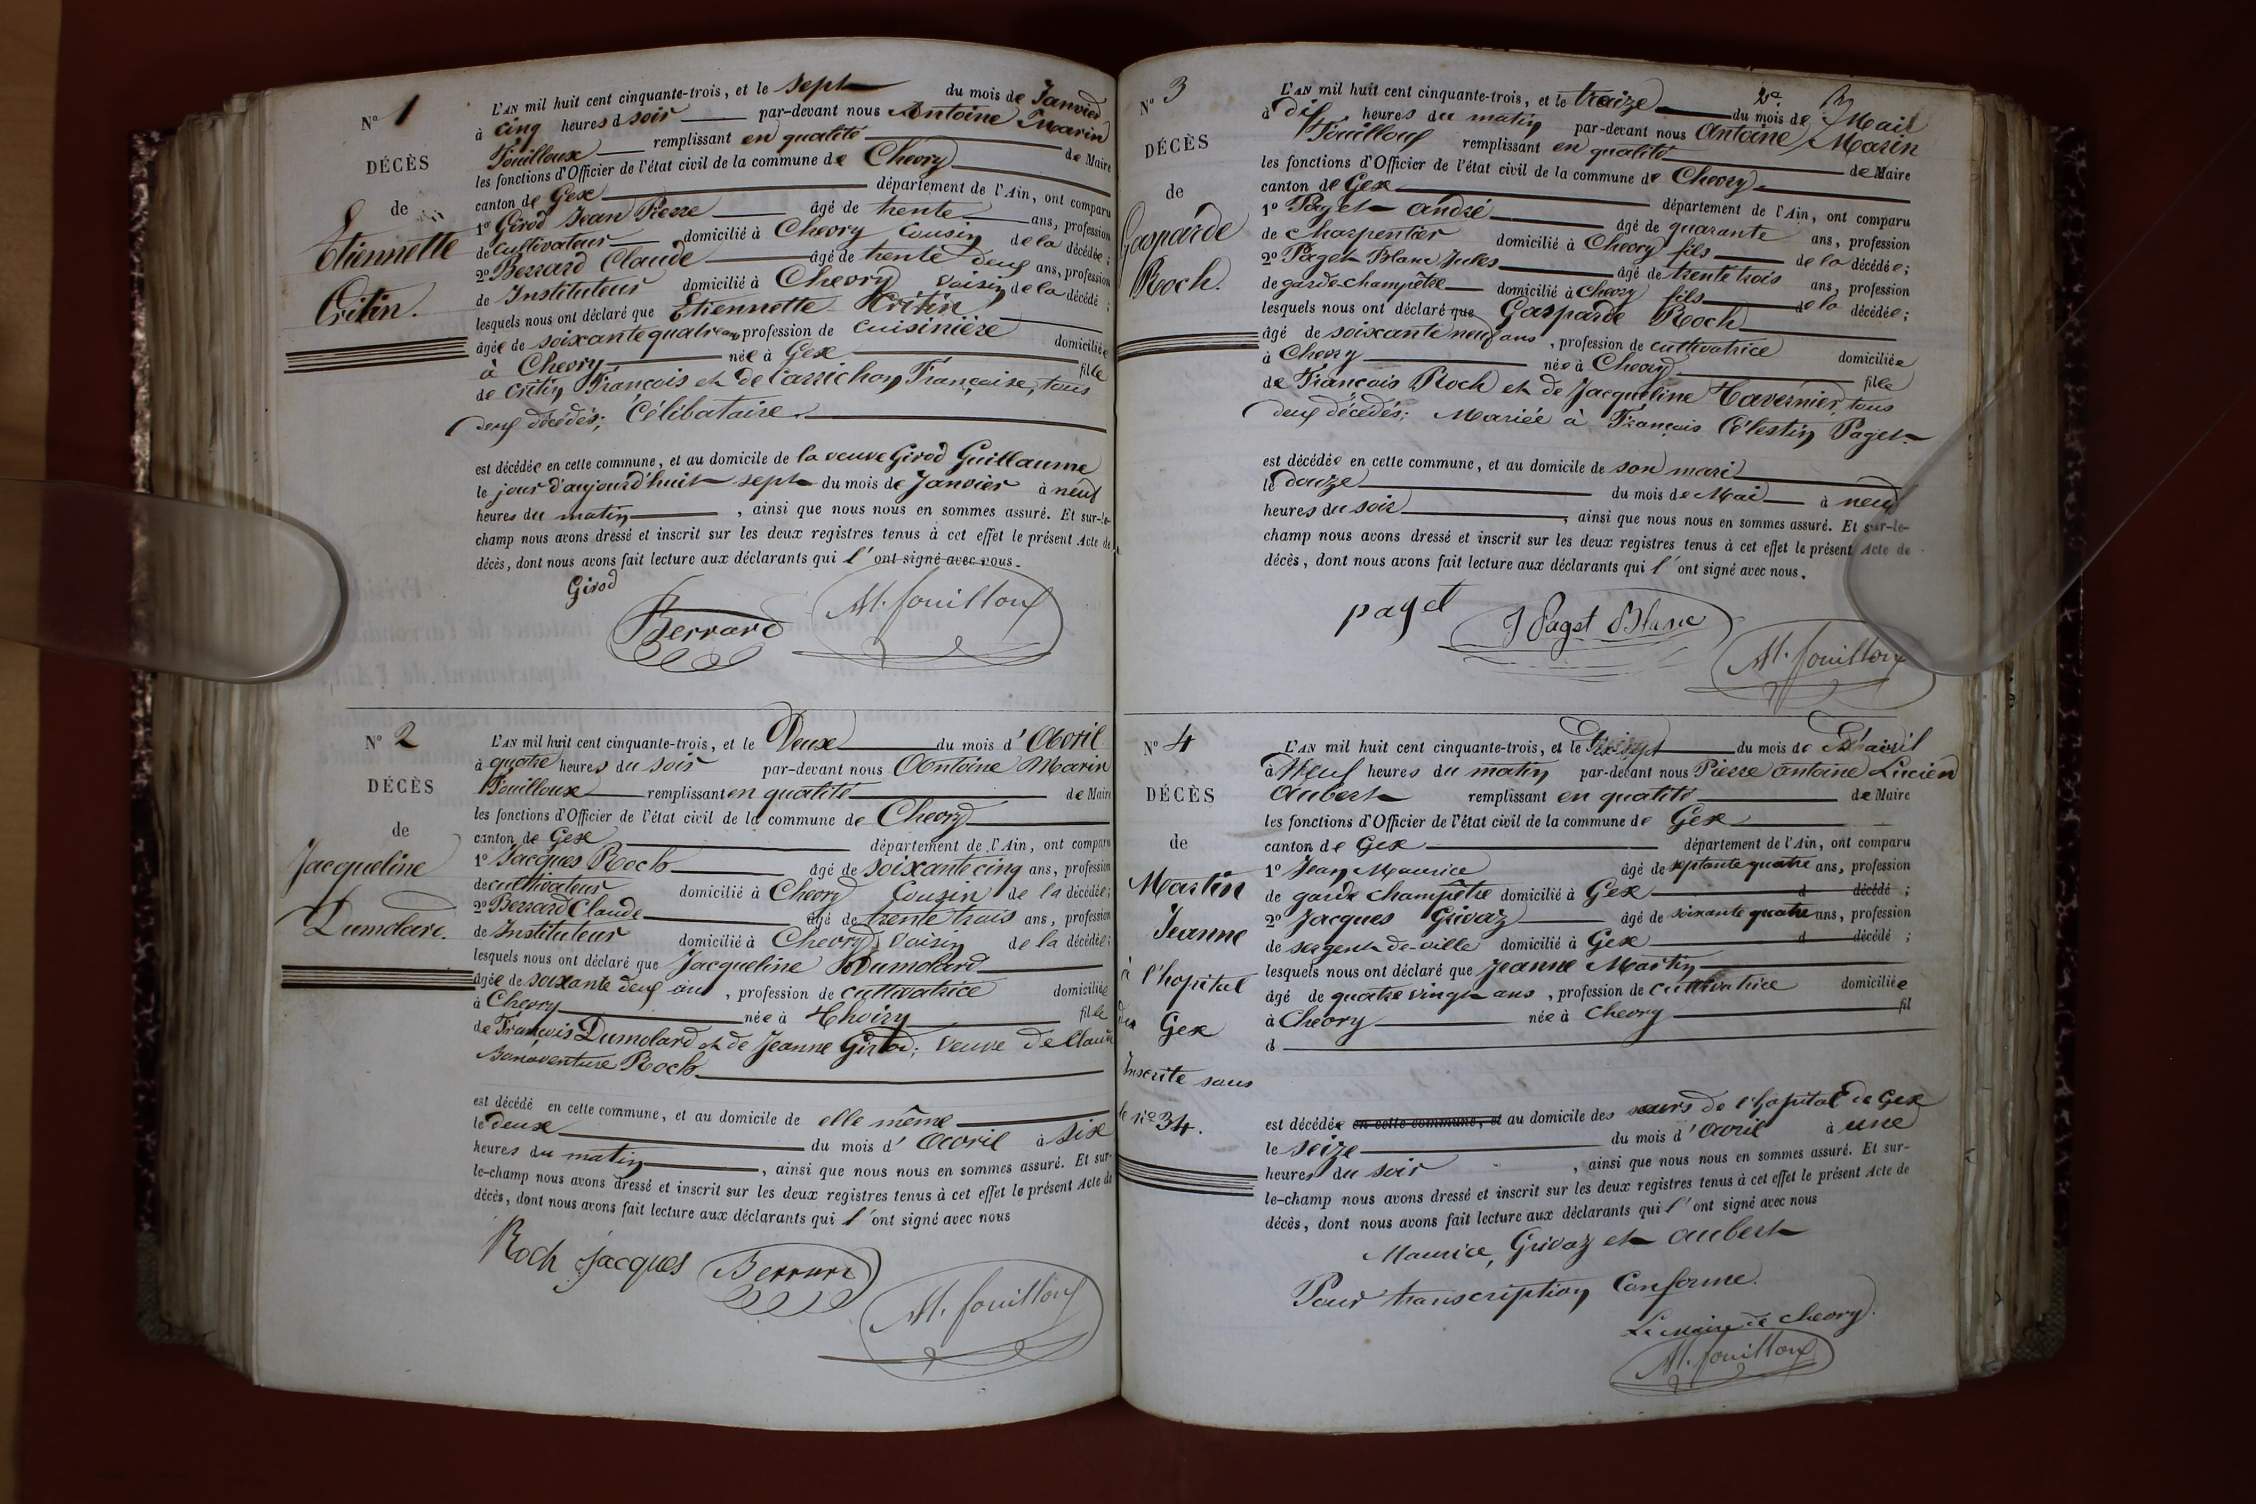 N° 1
DÉCÈS
de
Etiennette
Critin.
L'AN mil huit cent cinquante-trois, et le sept du mois de Janvier
à cinq heures du soir par-devant nous Antoine Marin
Fouilloux remplissant en qualité de Maire
les fonctions d'Officier de l'état civil de la commune de Chevry
canton de Gex département de l'Ain, ont comparu
1° Girod Jean Pierre âgé de trente ans, profession
de cultivateur domicilié à Chevry Cousin de la décédée;
2° Berrard Claude âgé de trente deux ans, profession
de Instituteur domicilié à Chevry voisin de la décédé;
lesquels nous ont déclaré que Etiennette Critin
âgée de soixante quatre ans profession de cuisinière domiciliée
à Chevry née à Gex fille
de Critin François et de Carrichon Françoise, tous
deux décédés; Célibataire.
est décédée en cette commune, et au domicile de la veuve Girod Guillaume
le jour d'aujourd'huit sept du mois de Janvier à neuf
heures du matin, ainsi que nous nous en sommes assuré. Et sur-le-
champ nous avons dressé et inscrit sur les deux registres tenus à cet effet le présent Acte de
décès, dont nous avons fait lecture aux déclarants qui l'ont signé avec nous.
Girod
Berrard
M. fouilloux
N° 2
DÉCÈS
de
Jacqueline
Dumolard.
L'AN mil huit cent cinquante-trois, et le Deux du mois d'Avril
à quatre heures du soir par-devant nous Antoine Marin
Fouilloux remplissant en qualité de Maire
les fonctions d'Officier de l'état civil de la commune de Chevry
canton de Gex département de l'Ain, ont comparu
1° Jacques Roch âgé de soixante cinq ans, profession
de cultivateur domicilié à Chevry Cousin de la décédée;
2° Berrard Claude âgé de trente trois ans, profession
de Instituteur domicilié à Chevry voisin de la décédée;
lesquels nous ont déclaré que Jacqueline Dumolard
âgée de soixante deux ans, profession de cultivatrice domiciliée
à Chevry née à Thoiry fille
de François Dumolard et de Jeanne Girod; veuve de Claude
Bonaventure Roch
est décédé en cette commune, et au domicile de elle même
le deux du mois d'Avril à six
heures du matin, ainsi que nous nous en sommes assuré. Et sur-
le-champ nous avons dressé et inscrit sur les deux registres tenus à cet effet le présent Acte de
décès, dont nous avons fait lecture aux déclarants qui l'ont signé avec nous
Roch Jacques
Berrard
M. fouilloux
N° 3
DÉCÈS
de
Gasparde
Roch.
L'AN mil huit cent cinquante-trois, et le treize du mois de Mai
à dix heures du matin par-devant nous Antoine Marin
Fouilloux remplissant en qualité de Maire
les fonctions d'Officier de l'état civil de la commune de Chevry
canton de Gex département de l'Ain, ont comparu
1° Paget André âgé de quarante ans, profession
de charpentier domicilié à Chevry fils de la décédée;
2° Paget Blanc Jules âgé de trente trois ans, profession
de garde-champêtre domicilié à Chevry fils de la décédée;
lesquels nous ont déclaré que Gasparde Roch
âgé de soixante neuf ans, profession de cultivatrice domiciliée
à Chevry née à Chevry fille
de François Roch et de Jacqueline Tavernier, tous
deux décédés; Mariée à François Célestin Paget
est décédée en cette commune, et au domicile de son mari
le douze du mois de Mai à neuf
heures du soir, ainsi que nous nous en sommes assuré. Et sur-le-
champ nous avons dressé et inscrit sur les deux registres tenus à cet effet le présent Acte de
décès, dont nous avons fait lecture aux déclarants qui l'ont signé avec nous.
paget
J Paget Blanc
M. fouilloux
N° 4
DÉCÈS
de
Martin
Jeanne
à l'hopital
de Gex
Inscrite sous
le n° 34.
L'AN mil huit cent cinquante-trois, et le Dix sept du mois de D'avril
à Neuf heures du matin par-devant nous Pierre antoine Lucien
Aubert remplissant en qualité de Maire
les fonctions d'Officier de l'état civil de la commune de Gex
canton de Gex département de l'Ain, ont comparu
1° Jean Maurice âgé de septante quatre ans, profession
de garde champêtre domicilié à Gex d décédé ;
2° Jacques Grivaz âgé de soixante quatre ans, profession
de sergent de-ville domicilié à Gex d décédé ;
lesquels nous ont déclaré que Jeanne Martin
âgé de quatre vingt ans, profession de cultivatrice domiciliée
à Chevry née à Chevry fil
d
est décédée en cette commune, et au domicile des sœurs de l'hopital de Gex
le seize du mois d'Avril à une
heures du soir, ainsi que nous nous en sommes assuré. Et sur-
le-champ nous avons dressé et inscrit sur les deux registres tenus à cet effet le présent Acte de
décès, dont nous avons fait lecture aux déclarants qui l'ont signé avec nous
Maurice, Grivaz et Aubert
Pour transcription Conforme.
Le Maire de Chevry.
M. fouilloux